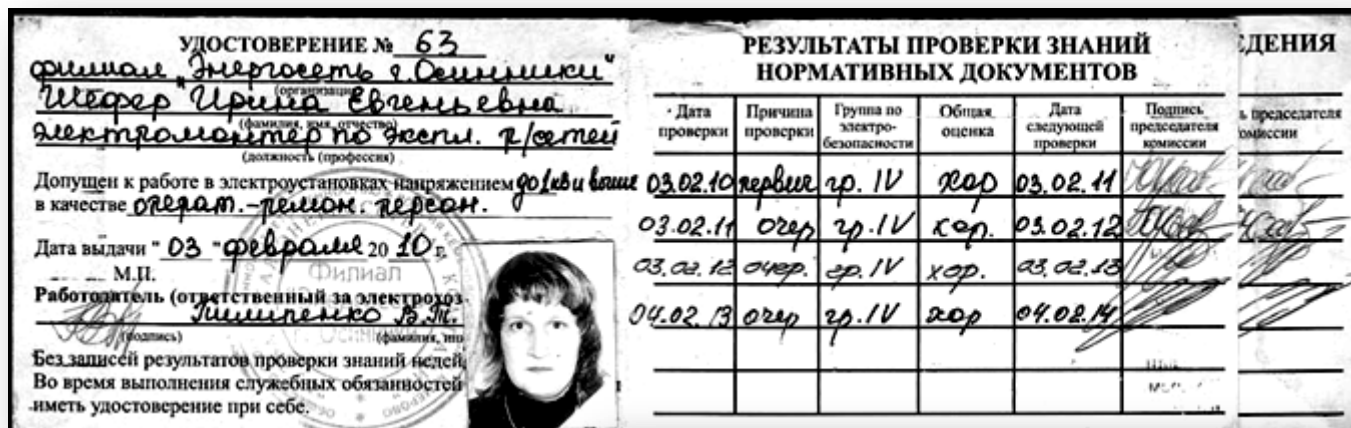 УДОСТОВЕРЕНИЕ № 63
филиал "Энергосеть г. Осинники"
(организация)
Шефер Ирина Евгеньевна
(фамилия, имя, отчество)
электромонтер по экспл. р/сетей
(должность (профессия)
Допущен к работе в электроустановках напряжением до 1 кв и выше
в качестве операт.-ремон. персон.
Дата выдачи "03" февраля 2010 г.
М.П.
Работодатель (ответственный за электрохоз
В.Т.
(подпись) (фамилия, ини
Без записей результатов проверки знаний недей
Во время выполнения служебных обязанностей
иметь удостоверение при себе.
Филиал
РЕЗУЛЬТАТЫ ПРОВЕРКИ ЗНАНИЙ
НОРМАТИВНЫХ ДОКУМЕНТОВ
Дата проверки Причина проверки Группа по электро-безопасности Общая оценка Дата следующей проверки Подпись председателя комиссии
03.02.10 первич гр. IV хор 03.02.11
03.02.11 очер гр. IV хор. 03.02.12
03.02.12 очер. гр. IV хор. 03.02.13
04.02.13 очер гр. IV хор 04.02.14
ДЕНИЯ
ь председателя
омиссии